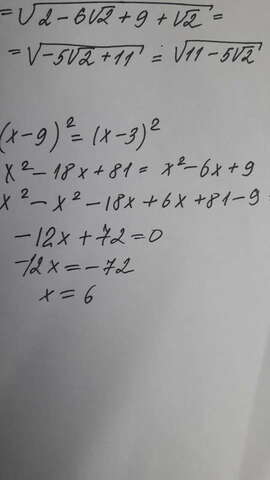 =√2-6√2+9+√2=
=√-5√2+11=√11-5√2
(x-9)²=(x-3)²
x²-18x+81=x²-6x+9
x²-x²-18x+6x+81-9
-12x+72=0
-12x=-72
x=6